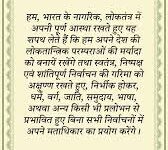 हम, भारत के नागरिक, लोकतंत्र में
अपनी पूर्ण आस्था रखते हुए यह
शपथ लेते हैं कि हम अपने देश की
लोकतान्त्रिक परम्पराओं की मर्यादा
को बनाये रखेंगे तथा स्वतंत्र, निष्पक्ष
एवं शांतिपूर्ण निर्वाचन की गरिमा को
अक्षुण्ण रखते हुए, निर्भीक होकर,
धर्म, वर्ग, जाति, समुदाय, भाषा,
अथवा अन्य किसी भी प्रलोभन से
प्रभावित हुए बिना सभी निर्वाचनों में
अपने मताधिकार का प्रयोग करेंगे।